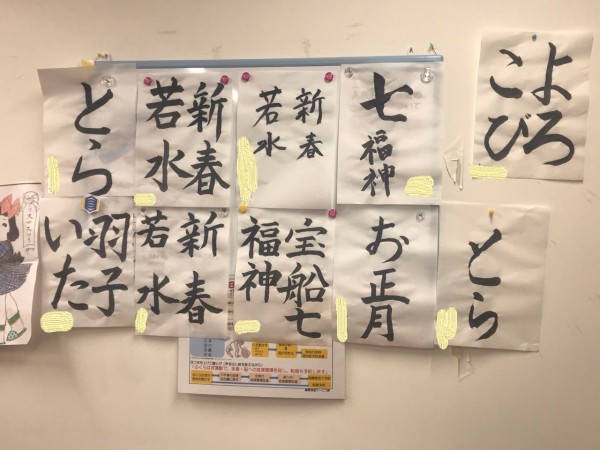 とら
新春
若水
新春
若水
七福神
よろ
こび
羽子
いた
新春
若水
宝船七
福神
お正月
とら